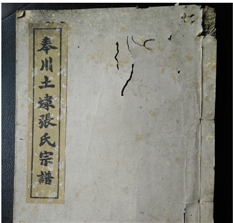 奉川土埭張氏宗譜